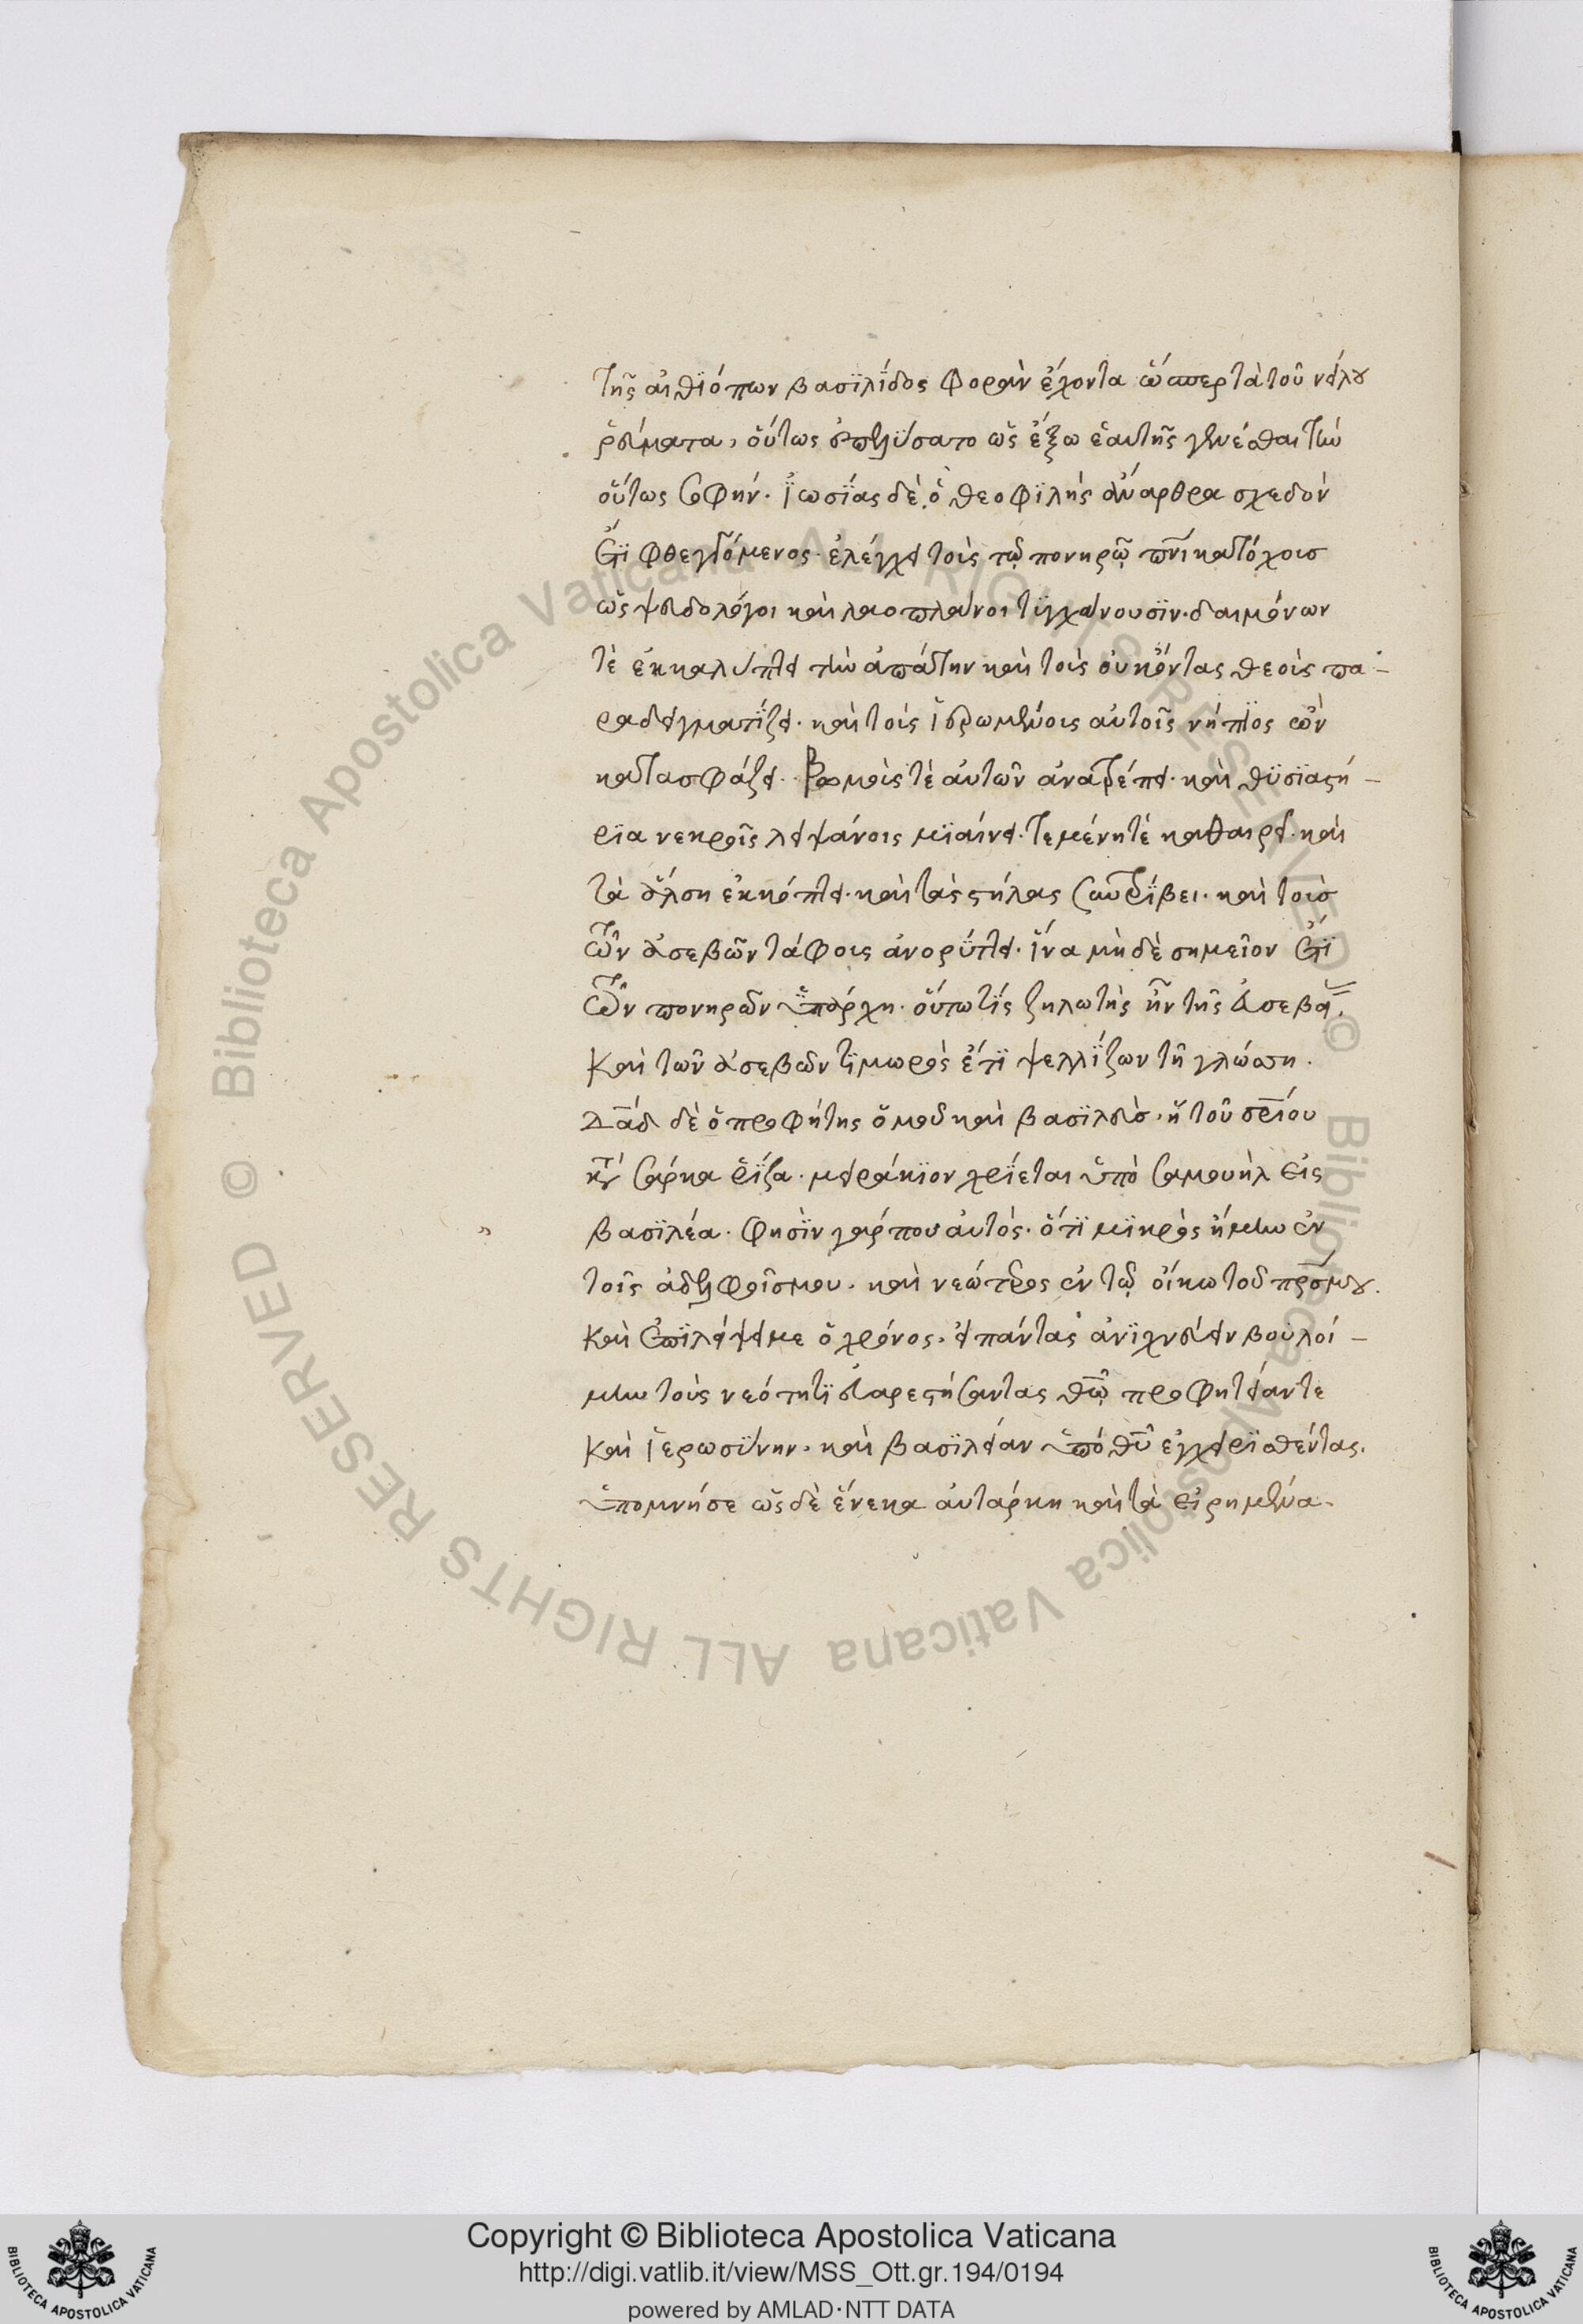 τῆς αἰθϊόπων βασϊλΐδος φορὰν ἔχοντα ὥσπερ τὰ τοῦ νείλου
ῥεύματα, οὕτως ἐπηλύσατο ὡς ἔξω ἑαυτῆς γενέσθαι τὴν
οὕτως σοφήν. ϊωσίας δὲ, ὁ θεοφϊλὴς ἄναρθρα σχεδὸν
ἔτϊ φθεγγόμενος. ἐλέγχει τοὺς τῷ πονηρῷ πνϊ κατόχουσ
ὡς ψευδολόγοι καὶ λαοπλάνοι τϋγχάνουσϊν. δαιμόνων
τὲ ἐκκαλύπτει τὴν ἀπάτην καὶ τοὺς οὐκ ὄντας θεοὺς πα-
ραδειγματίζει. καὶ τοὺς ϊερωμένους αὐτοῖς νήπϊος ὢν
κατασφάζει. βωμοὺς τὲ αὐτῶν ἀνατρέπει. καὶ θϋσϊαστή-
ρϊα νεκροῖς λειψάνοις μϊαίνει. τεμένη τὲ καθαιρεῖ. καὶ
τὰ ἄλση ἐκκόπτει. καὶ τὰς στήλας συντρίβει. καὶ τοὺσ
τῶν ἀσεβῶν τάφους ἀνορύττει. ἵνα μὴ δὲ σημεῖον ἔτϊ
τῶν πονηρῶν ὑπάρχη. οὕτω τϊς ζηλωτὴς ἦν τῆς εὐσεβείας.
καὶ τῶν ἀσεβῶν τϊμωρὸς ἔτϊ ψελλίζων τῆ γλώσση.
Δαδ δὲ ὁ προφήτης ὁμοῦ καὶ βασϊλεὺσ. ἡ τοῦ σρίου
κατὰ σάρκα ῥίζα. μειράκϊον χρίεται ὑπὸ σαμουὴλ εἰς
βασϊλέα. φησϊν γάρ που αὐτὸς. ὅτϊ μϊκρὸς ἤμην ἐν
τοῖς ἀδελφοῖς μου. καὶ νεώτερος ἐν τῷ οἴκω τοῦ πρσ μου.
καὶ ἐπϊλείψει με ὁ χρόνος. εἰ πάντας ἀνϊχνεύειν βουλοί-
μην τοὺς νεότητϊ εὐαρεστήσαντας θῶ προφητείαν τε
καὶ ϊερωσύνην. καὶ βασϊλείαν ὑπὸ θυ ἐγχειρϊσθέντας.
ὑπομνήσεως δὲ ἕνεκα αὐτάρκη καὶ τὰ εἰρημένα.
Copyright © Biblioteca Apostolica Vaticana
http://digi.vatlib.it/view/MSS_Ott.gr.194/0194
powered by AMLAD·NTT DATA